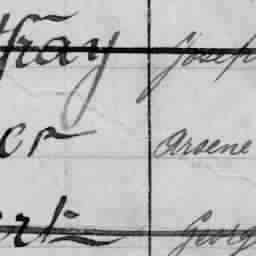 fray Joseph
er Arsene
ert Georg